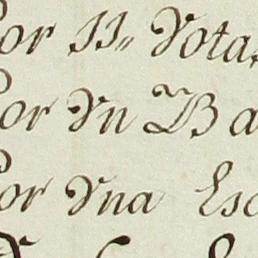 Por 11,, Vota
Por Vn Ba
Por Vna Esc